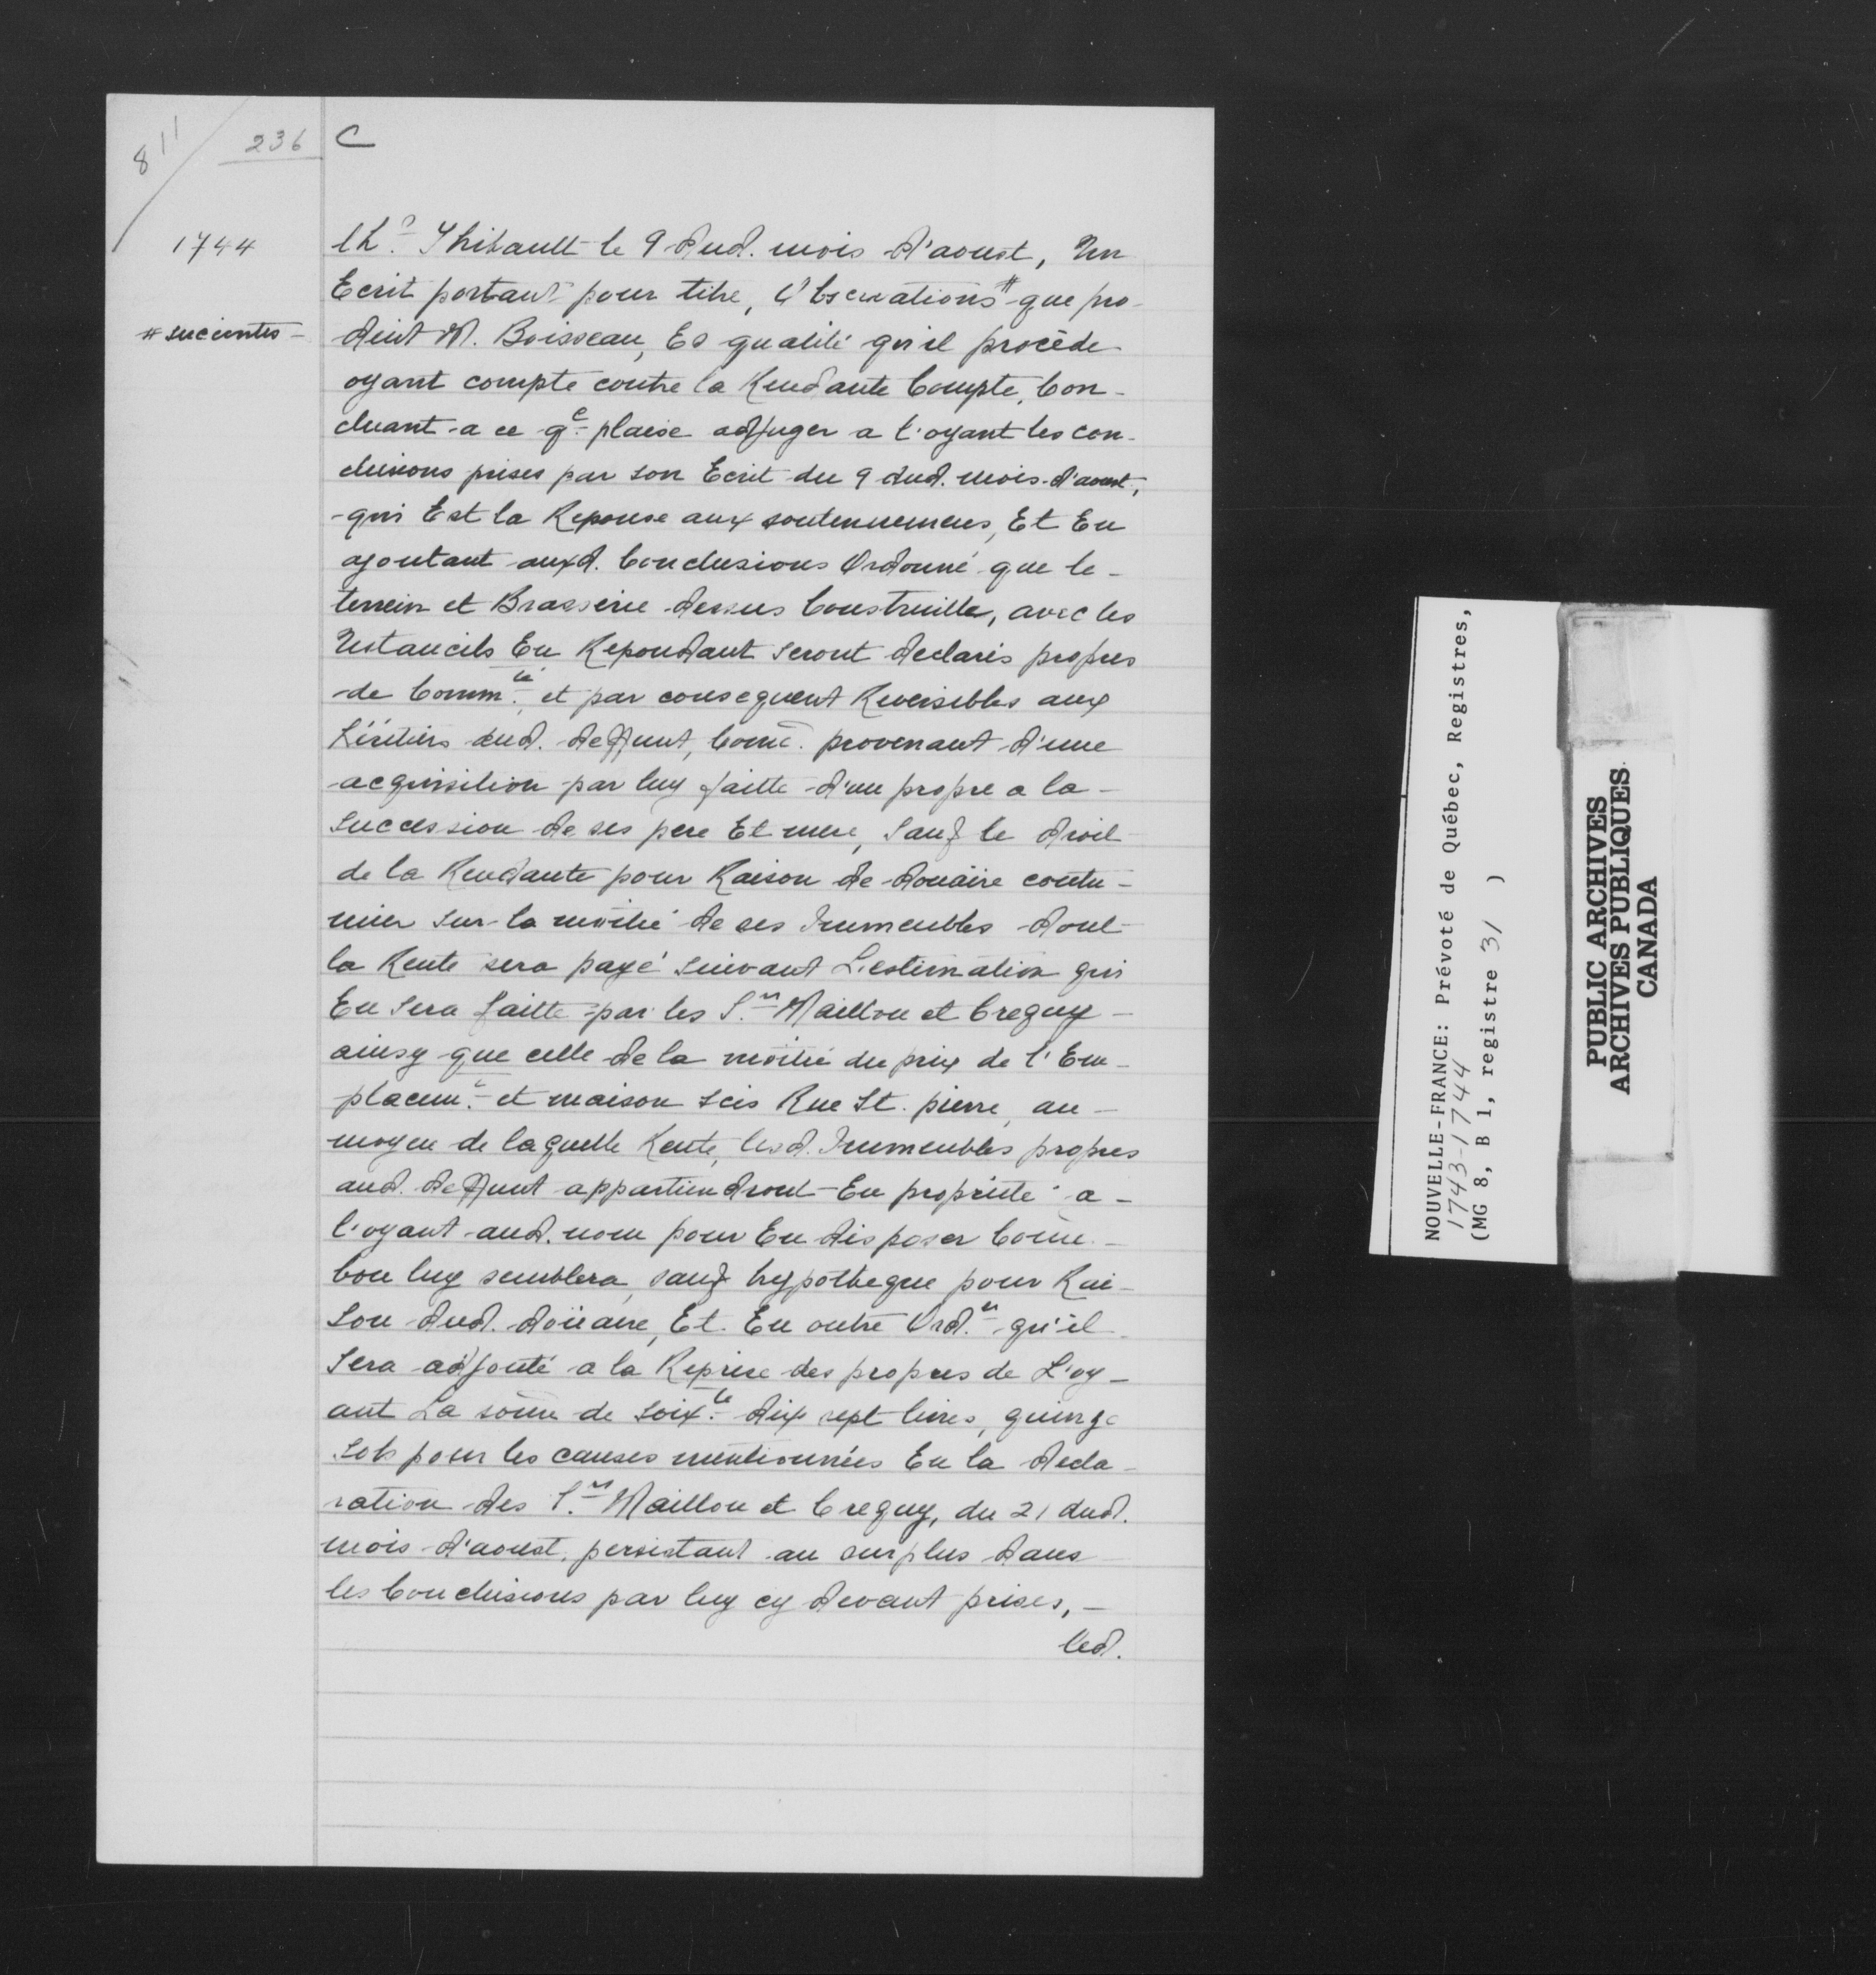 811
236 C
1744
lad.e Thibault le 9 dud. mois d'aoust, Un
Ecrit portant pour titre, Observations # que pro-
# sucintes -
duit M. Boisseau, Es qualité qu'il procède
oyant compte contre la Rendante Compte, Con-
cluant a ce q.e plaise adjuger a l'oyant les con-
clusions prises par son Ecrit du 9 dud. mois d'aoust,
qui Est la Reponse aux soutennemens, Et En
ajoutant auxd. Conclusions Ordonné que le -
terrein et Brasserie dessus Construitte, avec les
Ustancils En Repondant seront declarés propres
de Comm.té, et par consequent Reversibles aux
héritiers dud. deffunt, Comē. provenant d'une
acquisition par luy faitte d'un propre a la -
Succession de ses pere Et mere, Sauf le droit
de la Rendante pour Raison de douaire coutu-
mier sur la moitié de ses Immeubles dont
la Rente sera payé suivant L'estimation qui
En sera faitte par les S.rs Maillou et Creguy -
ainsy que celle de la moitié du prix de l'Em-
placem.t et maison scis Rue St. pierre, au -
moyen de laquelle Rente, lesd. Immeubles propres
aud. deffunt appartiendront En proprieté a -
l'oyant aud. nom pour En disposer Comē. -
bon luy semblera, sauf hypotheque pour Rai-
Son dud. doüaire, Et En outre Ord.er qu'il
Sera adjouté a la Reprise des propres de L'oy-
ant La somē de Soix.te dix sept livres, quinze
sols pour les causes mentionnées En la decla-
ration des S.rs Maillou et Creguy, du 21 dud.
mois d'aoust, persistant au surplus dans
les Conclusions par luy cy devant prises, -
Led.
NOUVELLE-FRANCE: Prévoté de Québec, Registres,
1743-1744
(MG 8, B 1, registre 31 )
PUBLIC ARCHIVES
ARCHIVES PUBLIQUES
CANADA